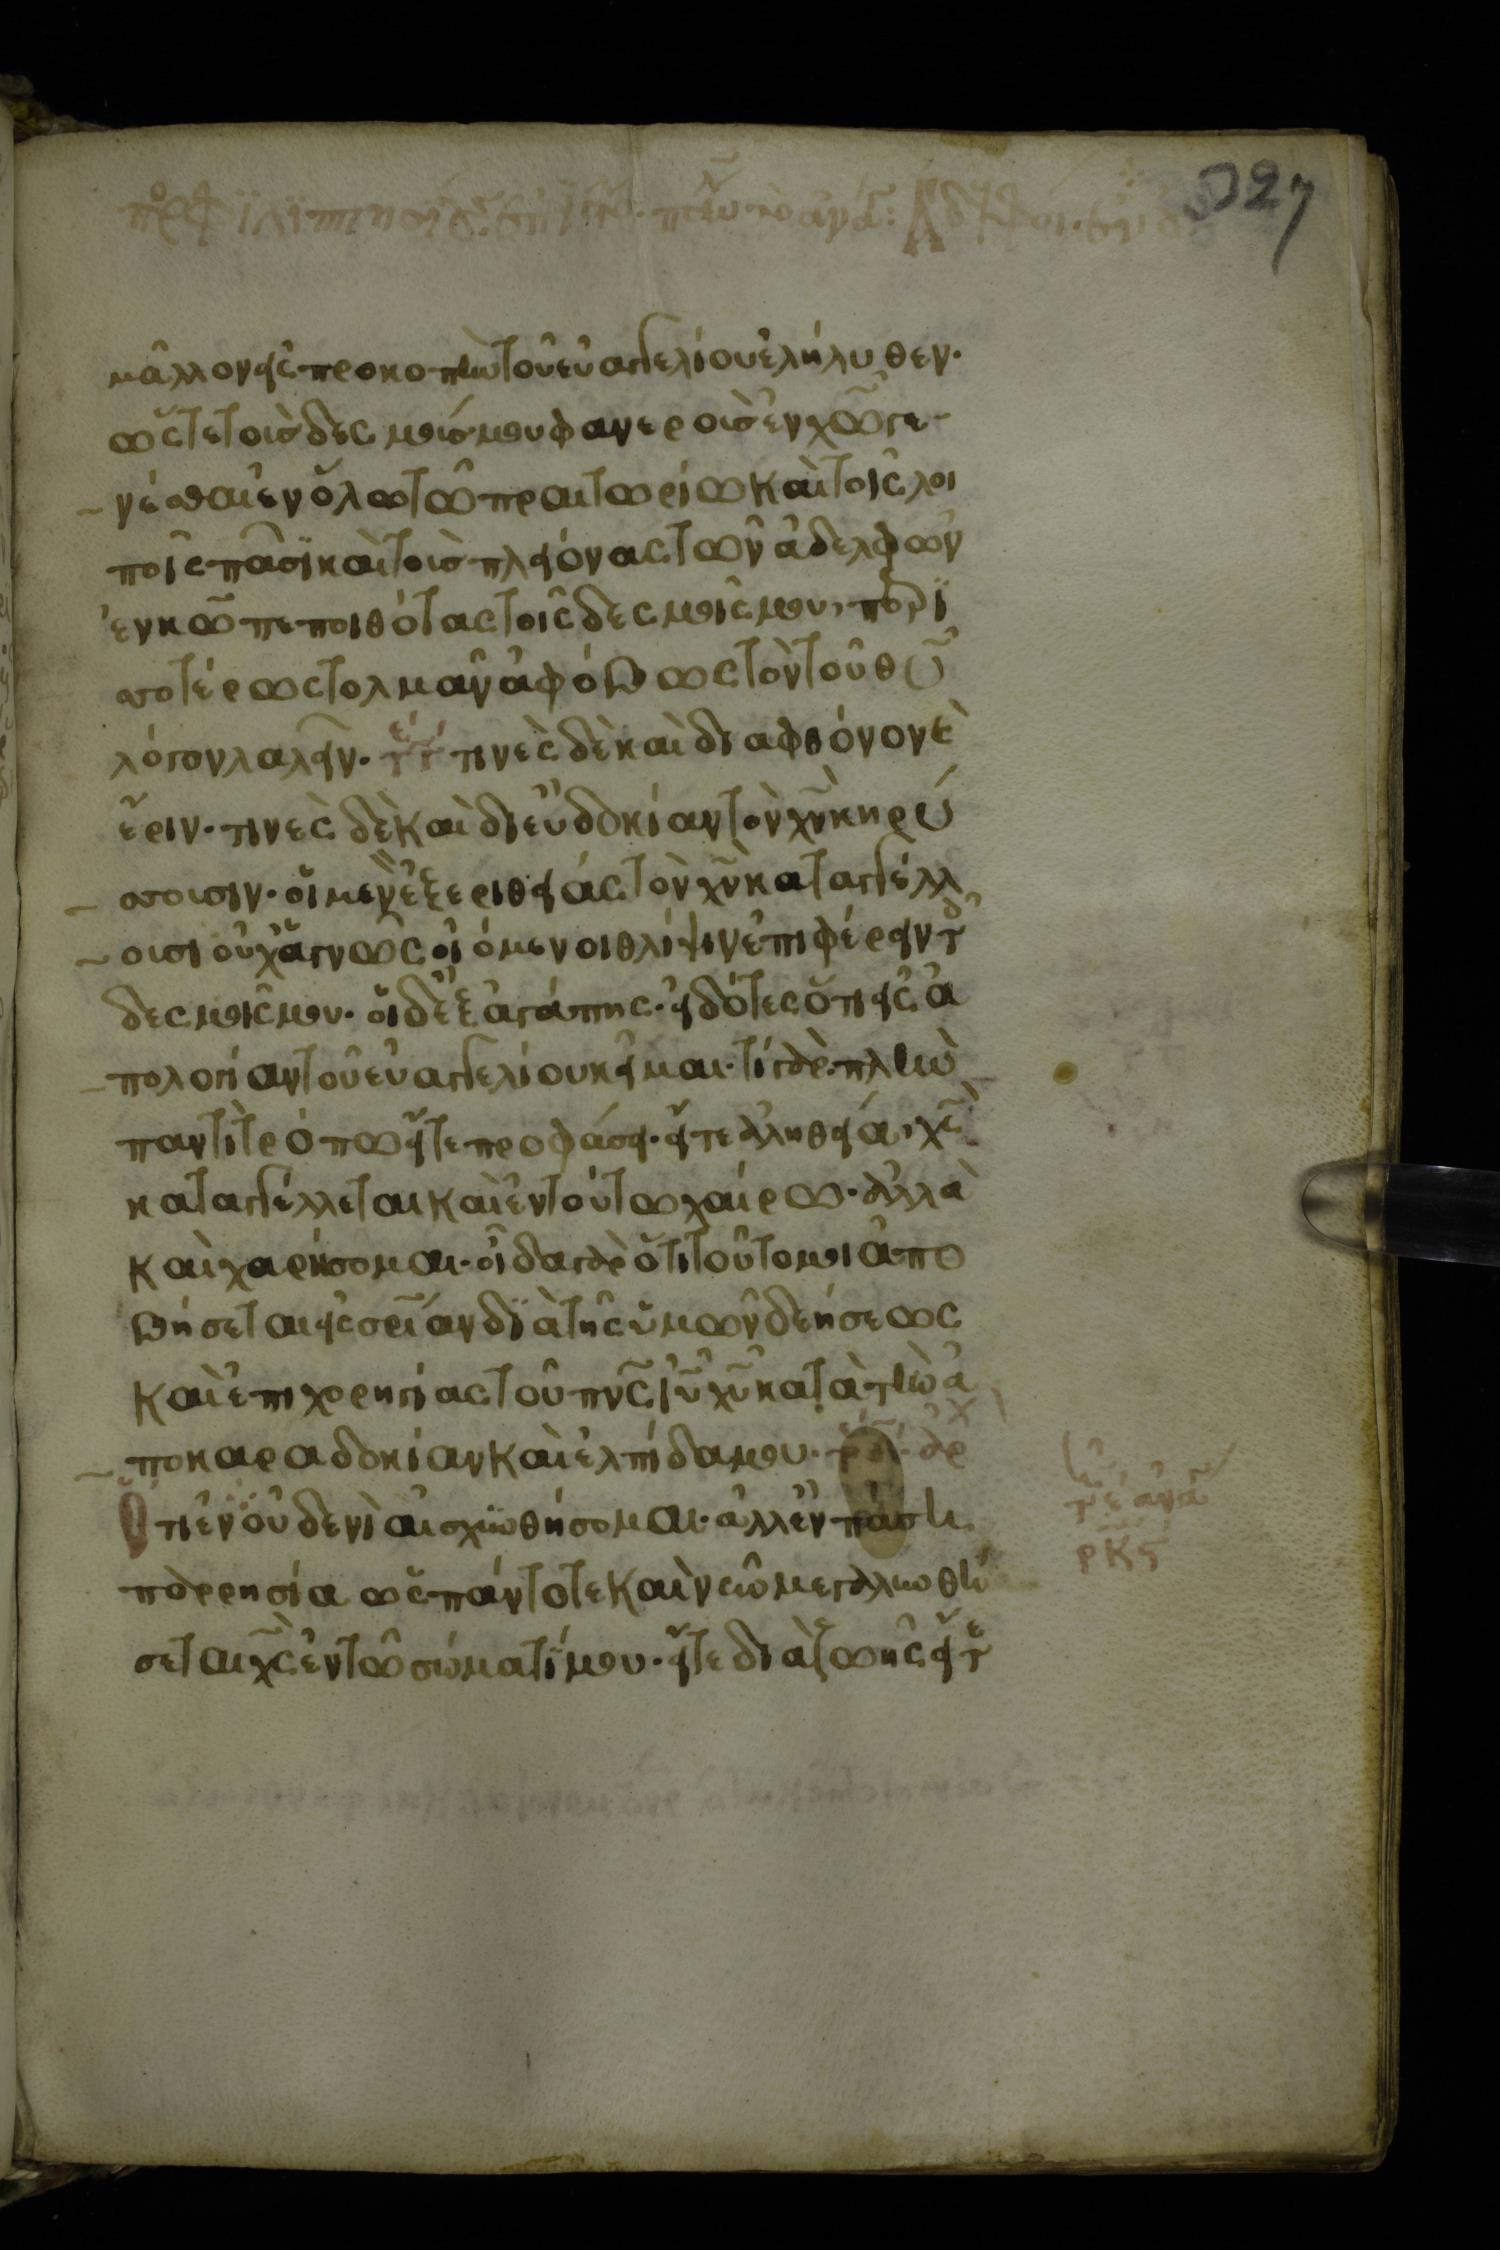 327
μᾶλλον εἰς προκοπὴν τοῦ εὐαγγελίου ἐλήλυθεν·
ὥστε τοὺς δεσμούς μου φανεροὺς ἐν χω γε
νέσθαι ἐν ὅλω τῶ πραιτωρίω καὶ τοῖς λοι
ποῖς πᾶσϊ καὶ τοὺς πλείονας τῶν ἀδελφῶν
ἐν κω πεποιθότας τοῖς δεσμοῖς μου, περϊ
σοτέρως τολμᾶν ἀφόβως τὸν τοῦ θυ
λόγον λαλεῖν· τινὲς δὲ καὶ διὰ φθόνον κὲ
ἔριν· τινὲς δὲ καὶ δι εὐδοκίαν τὸν χν κηρύ
σουσιν· οἱ μὲν ἐξ ἐριθείας τὸν χν καταγγέλλ
ουσι οὐχ ἁγνῶς οἰόμενοι θλίψιν ἐπιφέρειν τ
δεσμοῖς μου· οἱ δὲ ἐξ ἀγάπης· εἰδότες ὅτι εἰς ἀ
πολογίαν τοῦ εὐαγγελίου κεῖμαι· τί γὰρ· πλὴν
παντὶ τρόπω εἴτε προφάσει· εἴτε ἀληθεία, χς
καταγγέλλεται καὶ ἐν τούτω χαίρω· ἀλλὰ
καὶ χαρήσομαι· οἶδα γὰρ ὅτι τοῦτο μοι ἀπο
βήσεται εἰς σριαν δϊὰ τῆς ὑμῶν δεήσεως
καὶ ἐπιχορηγίας τοῦ πνς ιυ χυ κατὰ τὴν ἀ
ποκαραδοκίαν καὶ ἐλπίδα μου·
Ὅτι ἐν οὐδενὶ αἰσχυνθήσομαι· ἀλλ ἐν πάση
παρρησία ὡς πάντοτε καὶ νῦν μεγαλυνθή
σεται χς ἐν τῶ σώματϊ μου· εἴτε διὰ ζωῆς εἴτε
ρκς